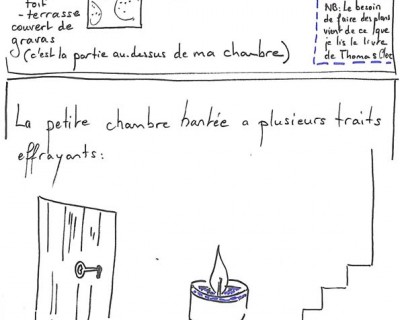 toit
-terrasse
couvert de
gravas
(c'est la partie au-dessus de ma chambre)
NB: Le besoin
de faire des plans
vient de ce que
je lis le livre
de Thomas
La petite chambre hantée a plusieurs traits
effrayants: